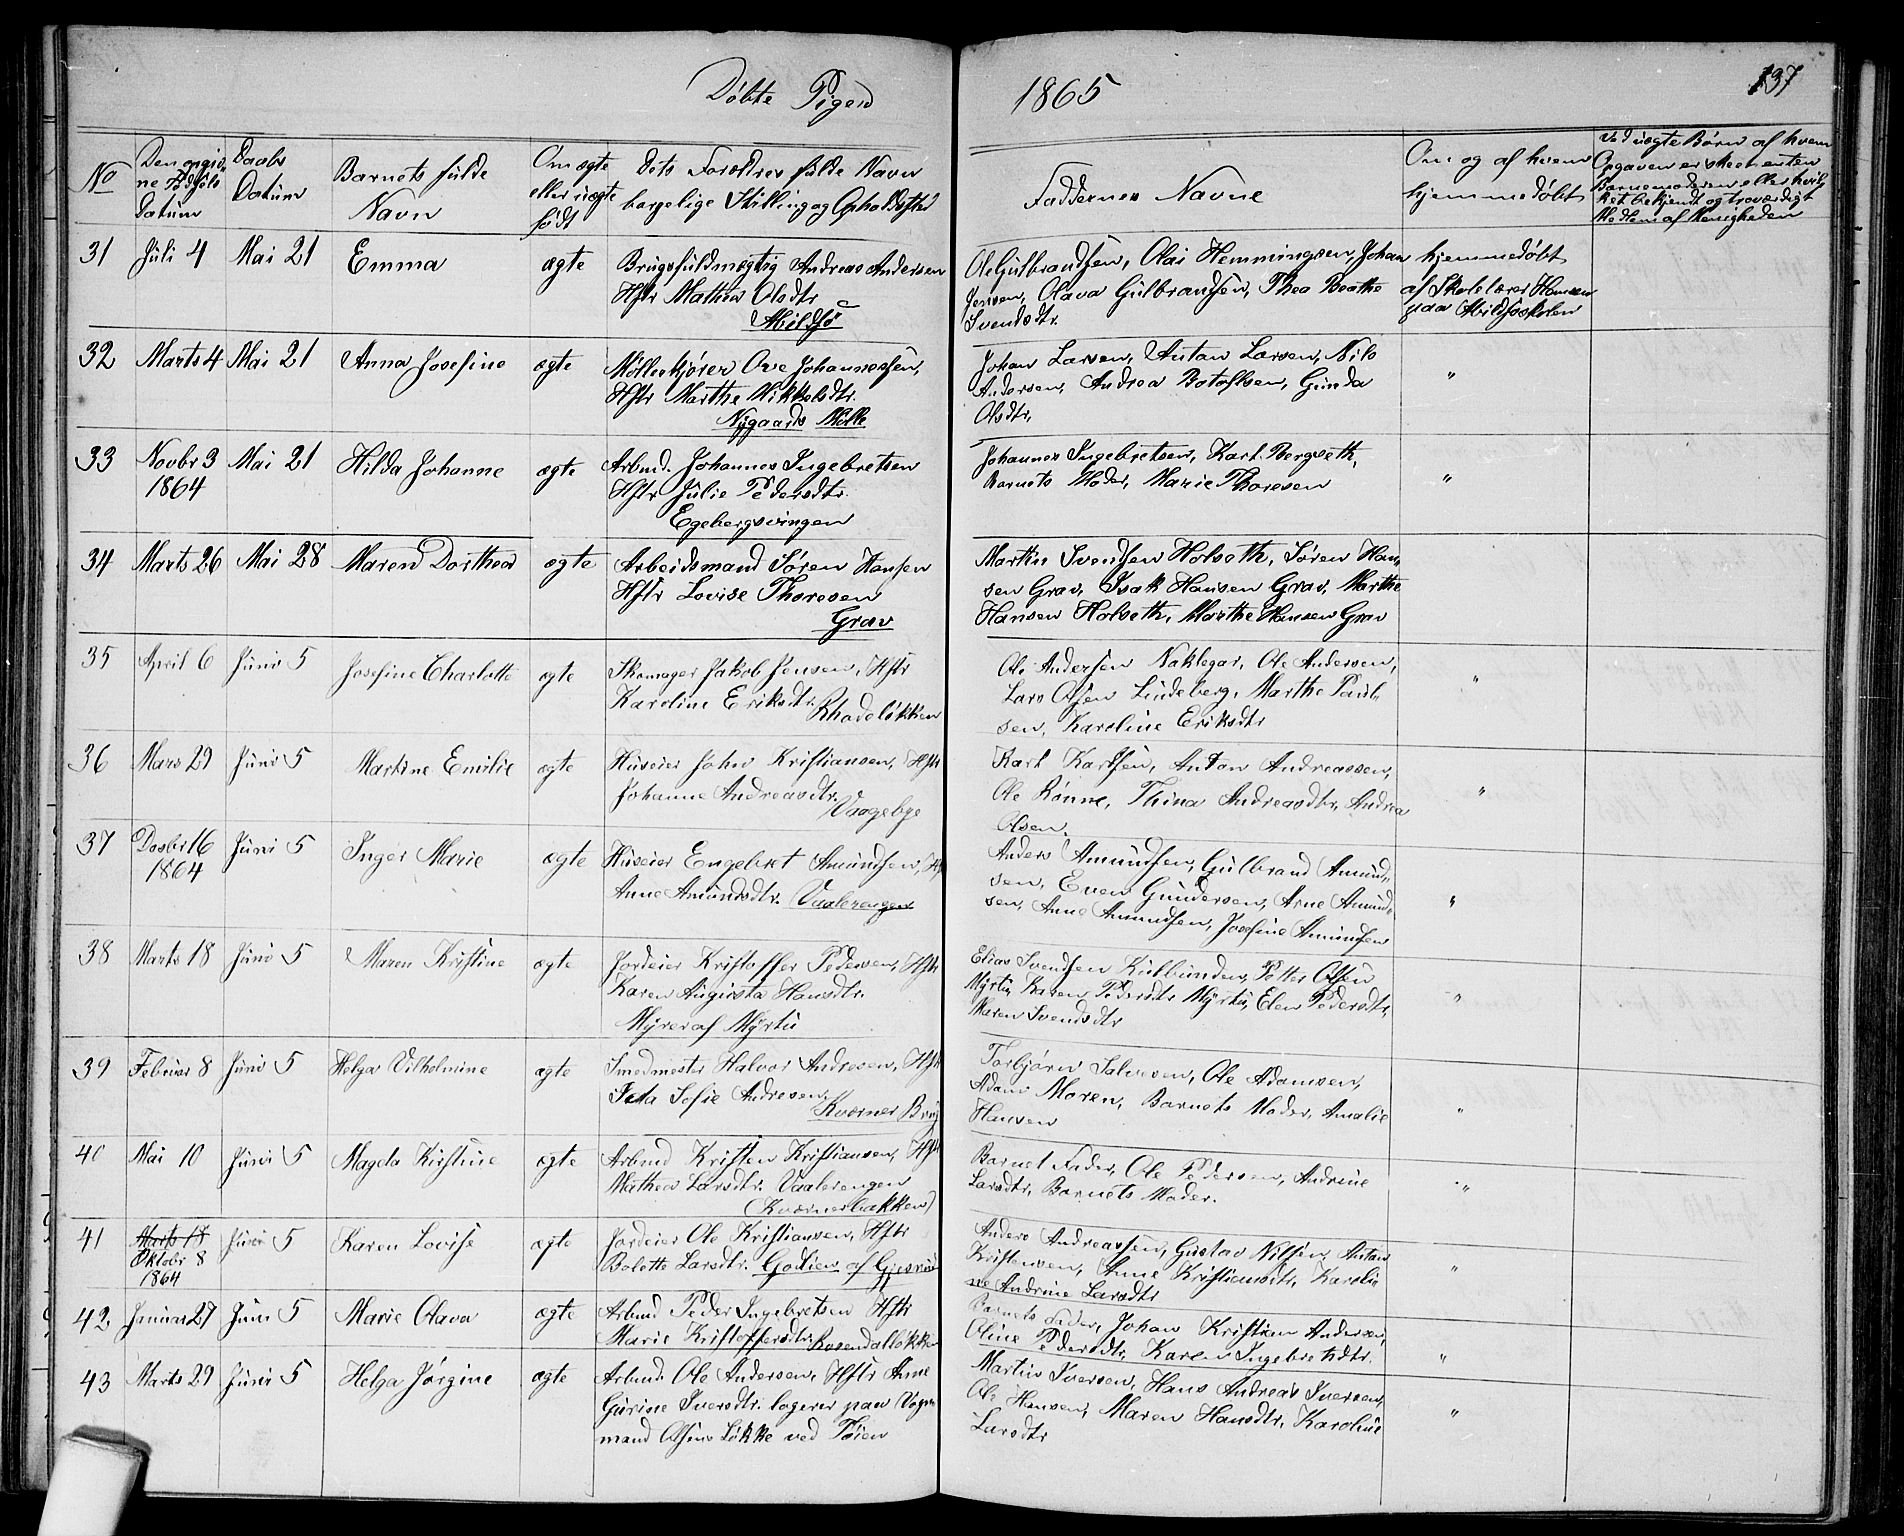 Døbte Piger 1865
137
No
Den angivne Fødsels Datum
Daabs Datum
Barnets fulde Navn
Om ægte eller uægte født
dets Forældres fulde Navn
borgelige Stilling og Opholdssted
Faddernes Navne
Om og af hvem hjemmedøbt
Ved uægte Børn af hvem
Opgaven er skeet enten
Barnemoderen eller hvil
ket bekjendt og troværdigt
Medlem af Menigheden
31 Juli 4 Mai 21 Emma ægte Brugsfuldmægtig Andreas Andersen
Hstr Mathea Olsdtr
Abildsø
Ole Gulbrandsen, Olai Hemmingsen, Johan
Jensen, Olava Gulbransen, Thea Beathe
Svendsdtr.
hjemmedøbt
af Skolelærer Hansen
paa Abildsøskolen
32 Marts 4 Mai 21 Anna Josefine ægte Møllerkjører Ove Johannessen,
Hstr Marthe Mikkelsdtr.
Nygaards Mølle
Johan Larsen, Antan Larsen, Nils
Andersen, Andrea Botolfsen, Gunda
Olsdtr.
"
33 Novbr 3
1864
Mai 21 Hilda Johanne ægte Arbmd. Johannes Ingebretsen
Hstr Julie Pedersdtr.
Egebergsvingen
Johannes Ingebretsen, Karl Bergseth,
Barnets Moder, Marie Thoresen
"
34 Marts 26 Mai 28 Maren Dorthea ægte Arbeidsmand Søren Hansen
Hstr Lovise Thoresen
Grav
Martin Svendsen Holseth, Søren Han,,
sen Grav, Isak Hansen Grav, Marthe
Hansen Holseth, Marthe Hansen Grav
35 April 6 Juni 5 Josefine Charlotte ægte Skomager Jakob Jensen, Hstr
Karoline Eriksdtr. Rhodeløkken
Ole Andersen Naklegar, Ole Andersen,
Lars Olsen Lindeberg, Marthe Paul,,
sen, Karoline Eriksdtr
"
36 Mars 29 Juni 5 Martine Emilie ægte Huseier John Kristiansen, Hstr
Johanne Andreasdtr.
Vaagebye
Karl Karlsen, Antan Andreassen,
Ole Rønne, Thina Andreasdtr, Andrea
Olsen.
"
37 Decbr 16
1864
Juni 5 Inger Marie ægte Huseier Engebret Amundsen, H
Anne Amundsdtr. Vaalerengen
Anders Amundsen, Gulbrand Amund,,
sen, Even Gundersen, Arne Amund,,
sen, Anne Amundsen, Josefine Amundsen
"
38 Marts 18 Juni 5 Maren Kristine ægte Jordeier Kristoffer Pedersen, Hstr
Karen Augusta Hansdtr.
Myrer af Myrtu
Elias Svendsen Kulbunden, Petter Olsen
Myrtu, Karen Pedersdtr Myrtu, Elen Pedersdtr,
Maren Svendsdtr
"
39 Februar 8 Juni 5 Helga Vilhelmine ægte Smedmester Halvor Andresen, Hstr
Sofie Andresen,
Kværner Brug
Torbjørn Salvesen, Ole Adamsen,
Adam Moren, Barnets Moder, Amalie
Hansen
"
40 Mai 10 Juni 5 Magda Kirstine ægte Arbmd Kristen Kristiansen, Hstr
Mathea Larsdtr. Vaalerengen
(Kværnerbakken)
Barnet Fader, Ole Pedersen, Andrine
Larsdtr, Barnets Moder.
"
41 Marts 17
Oktobr 8
1864
Juni 5 Karen Lovise ægte Jordeier Ole Kristiansen, Hstr
Bolette Larsdtr. Godlien af
Anders Andreassen, Gustav Nilsen, Antan
Kristensen, Anne Kristiansdtr, Karoli
ne Andrine Larsdtr
"
42 Januar 27 Juni 5 Marie Olava ægte Arbmd Peder Ingebretsen Hstr
Marie Kristoffersdtr. Rosendalløkken
Barnets Fader, Johan Kristian Andersen,
Oline Pedersdtr, Karen Ingebretsdtr.
"
43 Marts 29 Juni 5 Helga Jørgine ægte Arbmd. Ole Andersen, Hstr Anne
Gurine Iversdtr. logerer paa Vogn
mand Olsens Løkke ved Tøien
Martin Iversen, Hans Andreas Iversen,
Ole Hansen, Maren Hansdtr, Karoline
Larsdtr
"